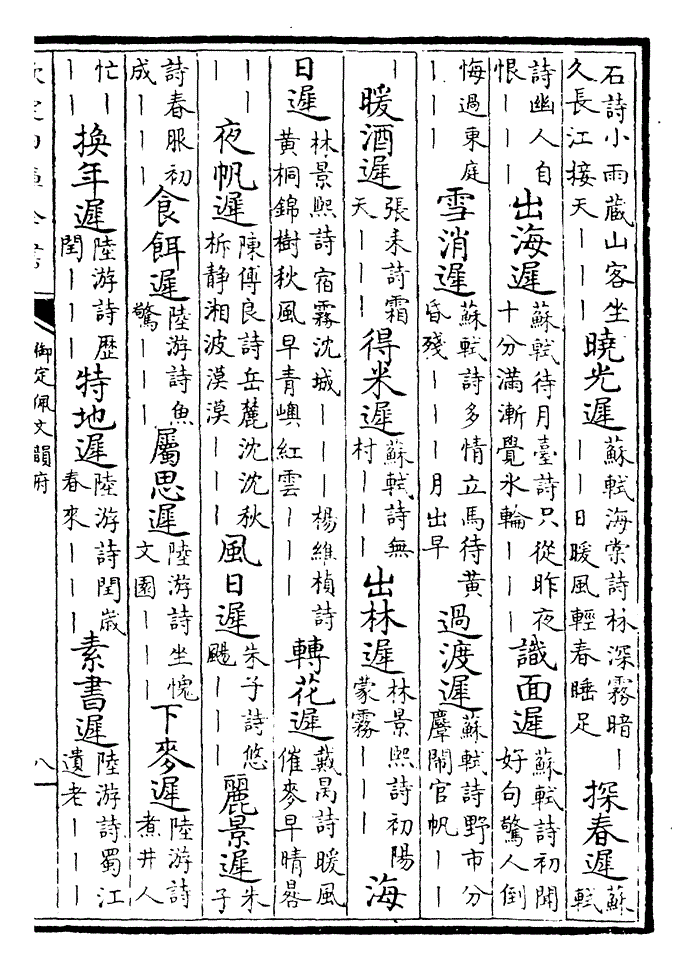 石詩小雨藏山客坐久長江接天｜｜｜曉光遲蘇軾海棠詩林深霧暗｜｜｜日暖風輕春睡足探春遲蘇軾
詩幽人自恨｜｜｜出海遲蘇軾待月臺詩只從昨夜十分滿漸覺氷輪｜｜｜識面遲蘇軾詩初聞好句驚人倒
悔過東庭｜｜｜雪消遲蘇軾詩多情立馬待黄昏殘｜｜｜月出早過渡遲蘇軾詩野市分麞鬧官帆｜｜
｜暖酒遲張耒詩霜天｜｜｜得米遲蘇軾詩無村｜｜｜出林遲林景熙詩初陽蒙霧｜｜｜海
日遲林景熙詩宿霧沈城｜｜｜楊維楨詩黄桐錦樹秋風早青嶼紅雲｜｜｜轉花遲戴昺詩暖風催麥早晴晷
｜｜｜夜帆遲陳傅良詩岳麓沈沈秋柝静湘波漠漠｜｜｜風日遲朱子詩悠颺｜｜｜麗景遲朱子
詩春服初成｜｜｜食餌遲陸游詩魚驚｜｜｜屬思遲陸游詩坐愧文園｜｜｜下麥遲陸游詩煮井人
忙｜｜｜換年遲陸游詩歷閏｜｜｜特地遲陸游詩閏歲春來｜｜｜素書遲陸游詩蜀江遺老｜｜｜
欽定四庫全書 御定佩文韻府 八